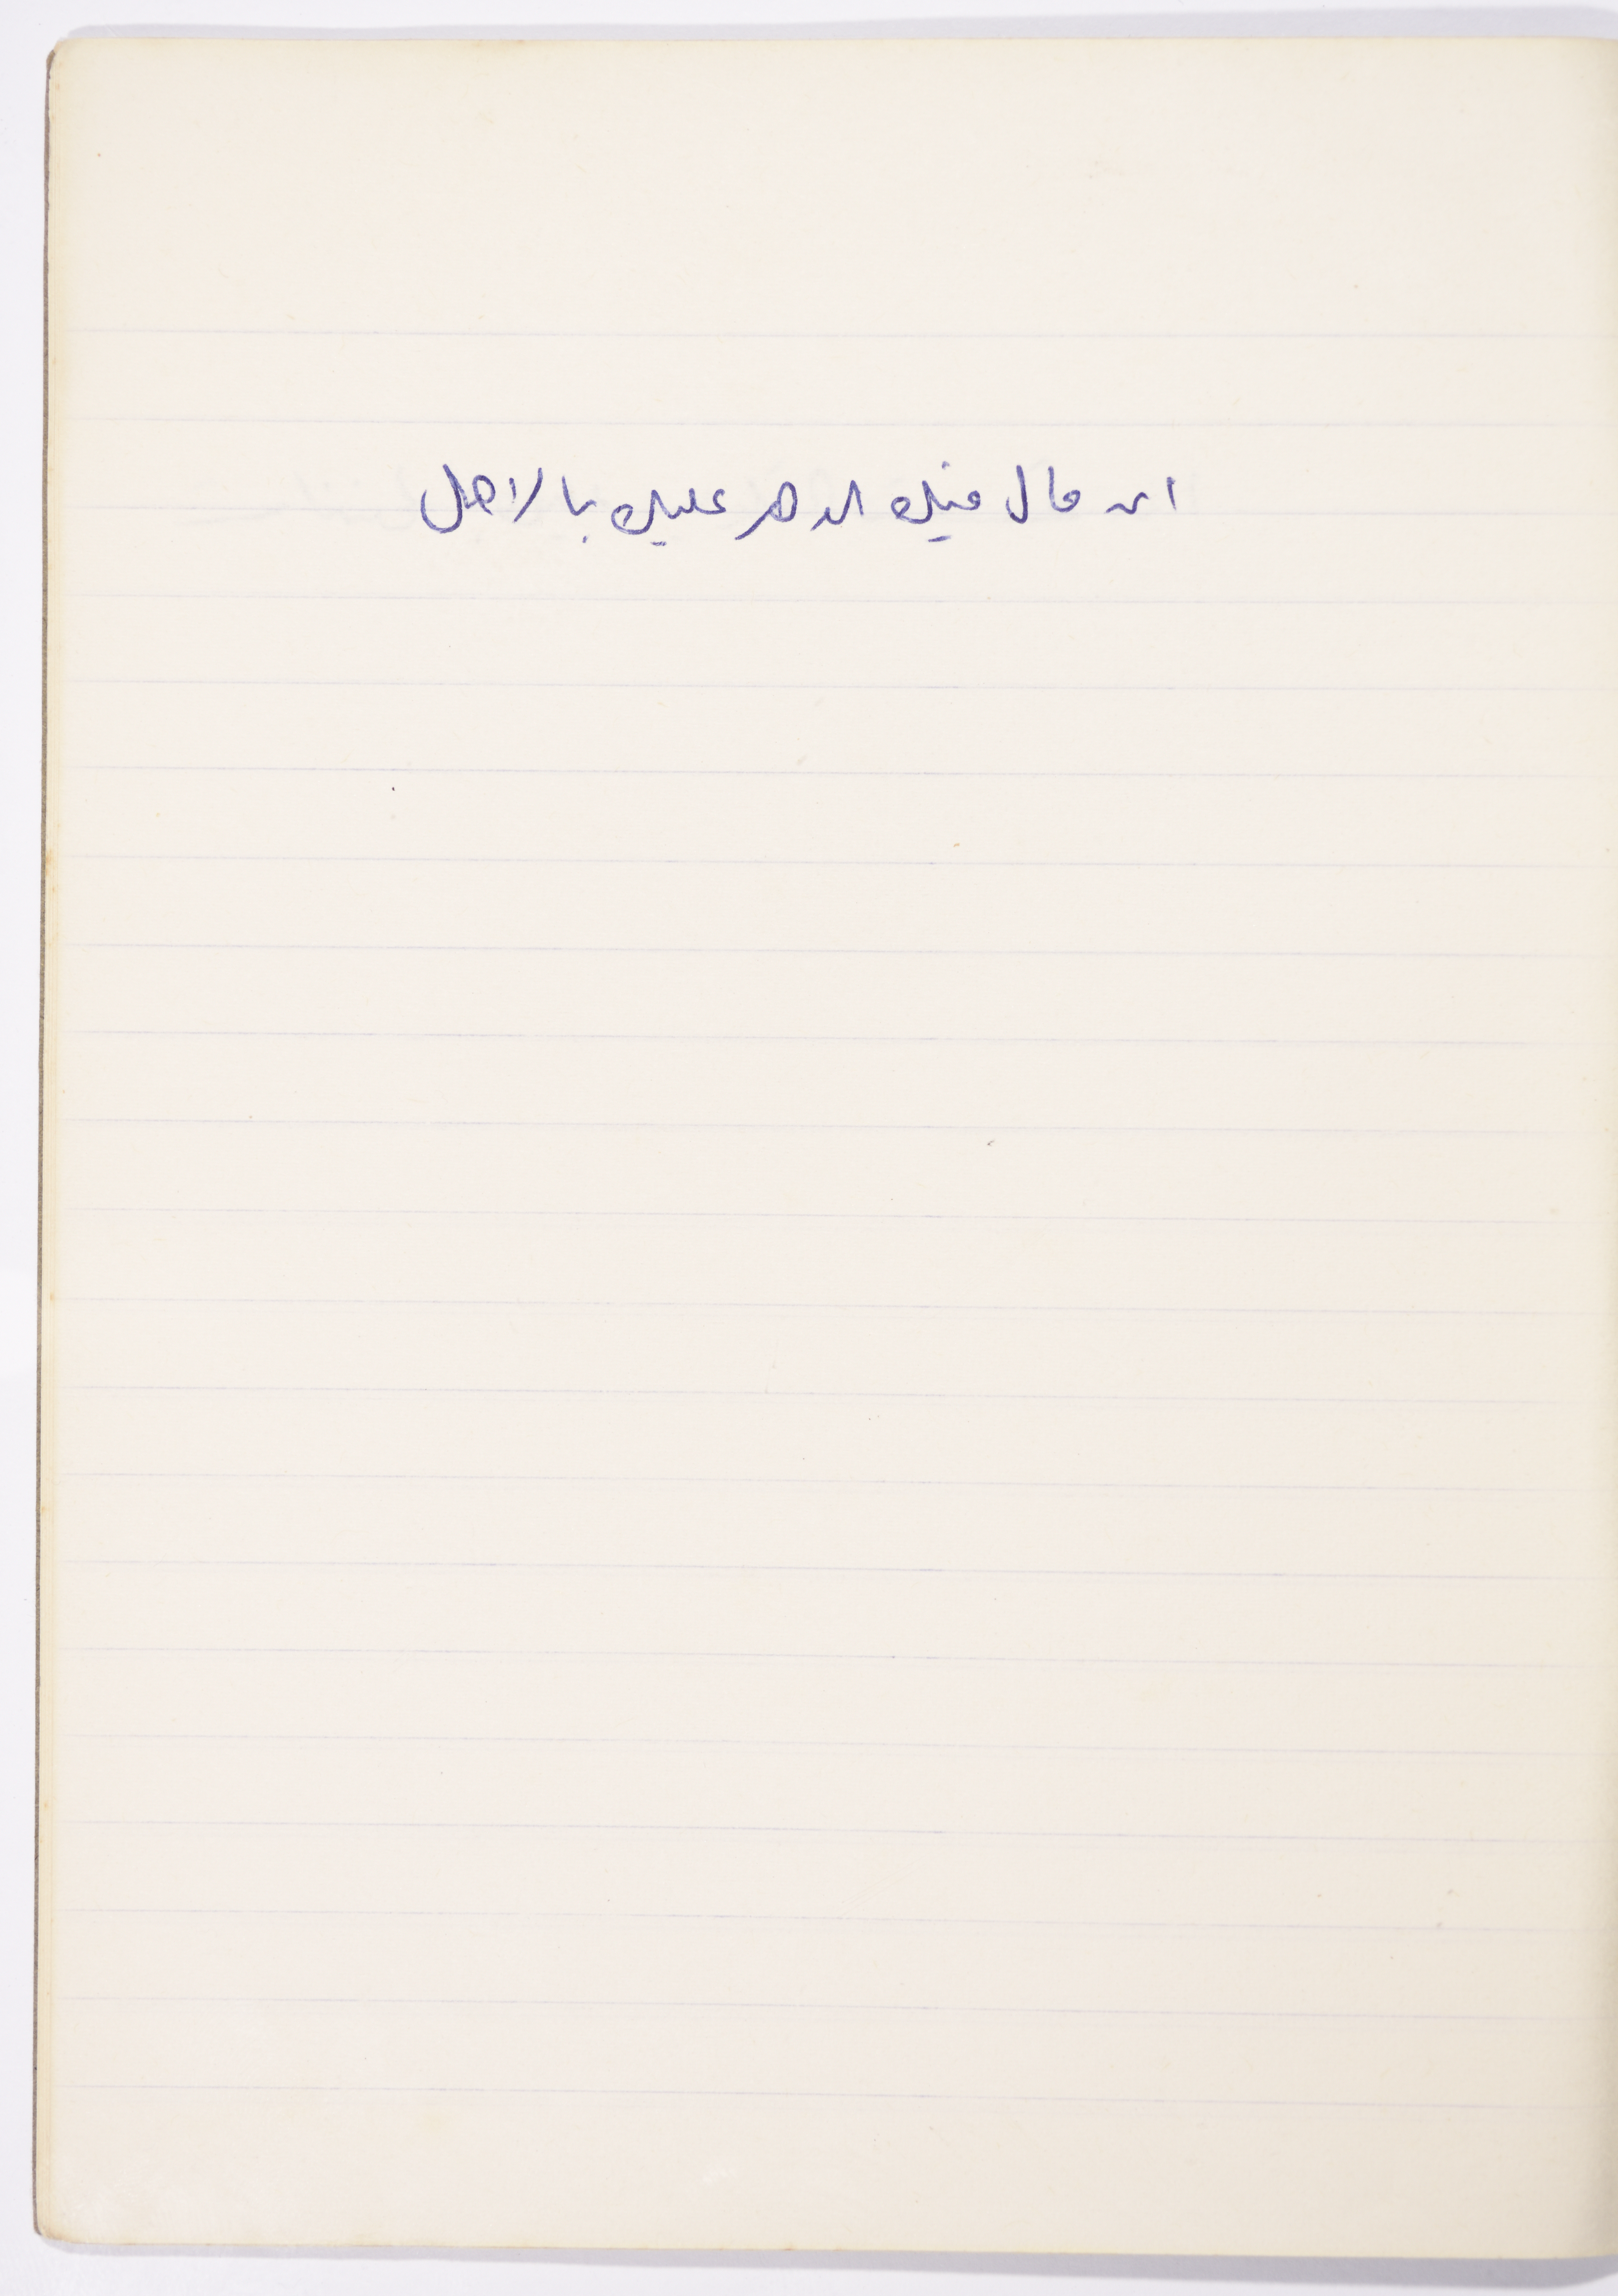 ان مال فيك الدهر عليك بالاهل